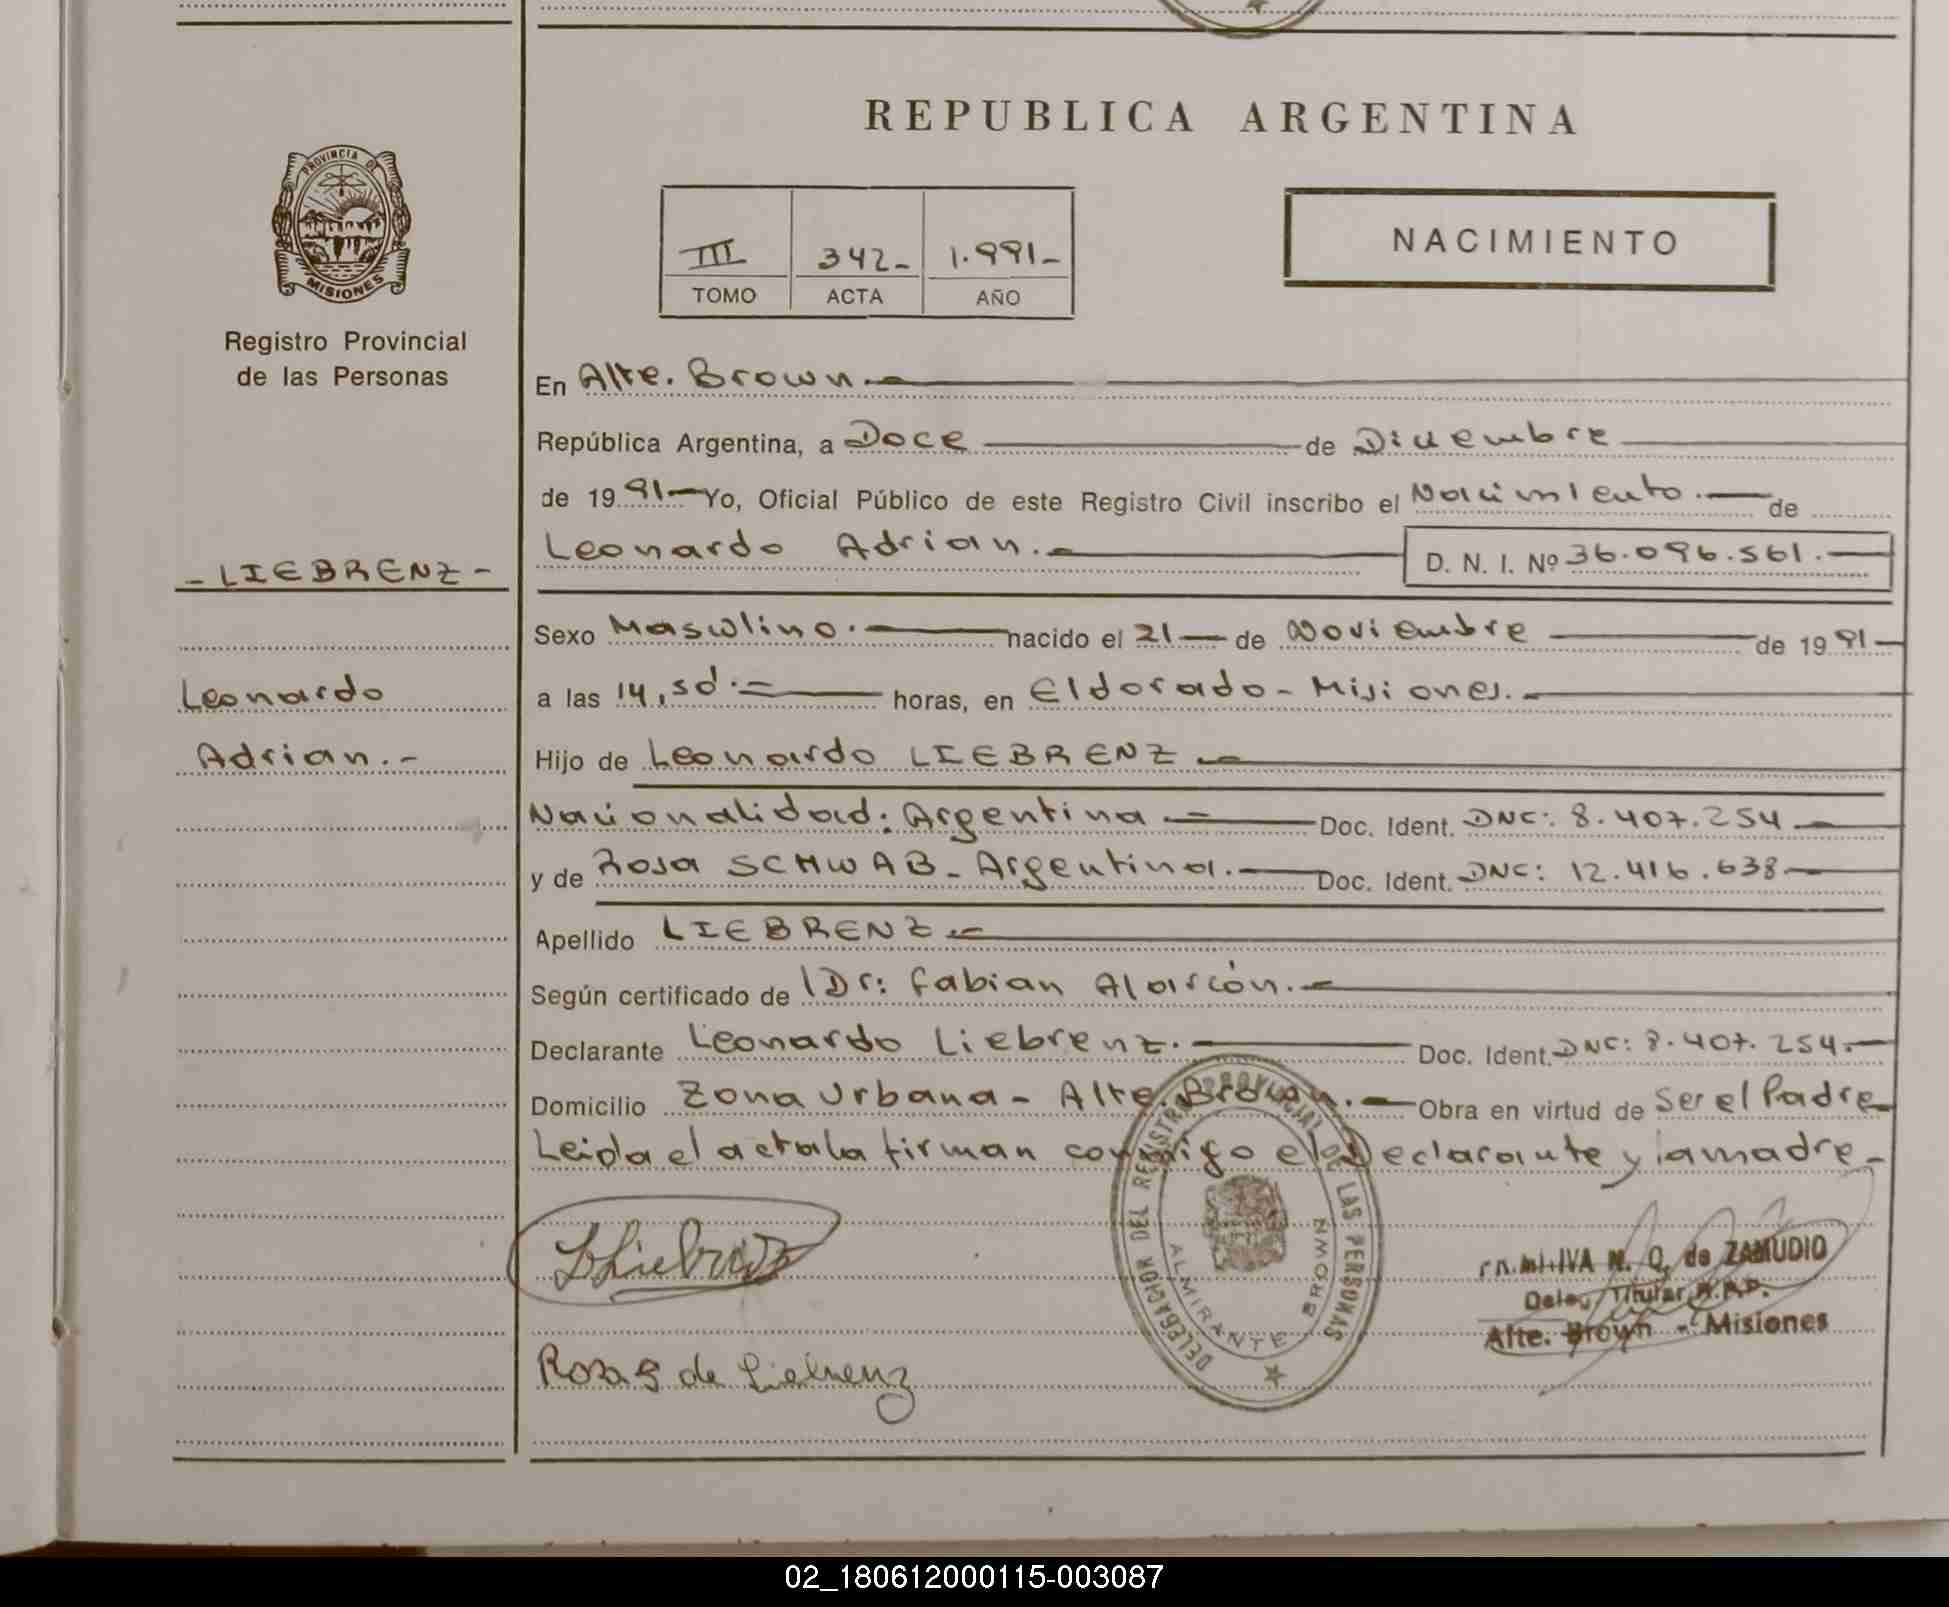 REPUBLICA ARGENTINA
PROVINCIA DE
MISIONES
Registro Provincial
de las Personas
III 342- 1.991-
TOMO ACTA AÑO
NACIMIENTO
En Alte. Brown.-
República Argentina, a Doce de Diciembre
de 19 91- Yo, Oficial Público de este Registro Civil inscribo el Nacimiento.- de
Leonardo Adrian.- D. N. I. Nº 36.096.561.-
- LIEBRENZ -
Leonardo
Adrian.-
Sexo Masculino.- nacido el 21- de Noviembre de 19 91-
a las 14,50.= horas, en Eldorado - Misiones.-
Hijo de Leonardo LIEBRENZ.-
Nacionalidad: Argentina.- Doc. Ident. DNC: 8.407.254.-
y de Rosa SCHWAB - Argentina.- Doc. Ident. DNC: 12.416.638-
Apellido LIEBRENZ.-
Según certificado de Dr: Fabian Alarcón.-
Declarante Leonardo Liebrenz.- Doc. Ident. DNC: 8.407.254.-
Domicilio Zona Urbana - Alte. Brown.- Obra en virtud de Ser el Padre-
Leida el acta la firman conmigo el Declarante y la madre-
L Liebrenz
DELEGACION DEL REGISTRO PROVINCIAL DE LAS PERSONAS
ALMIRANTE BROWN
de ZAMUDIO
Titular
Alte. Brown - Misiones
Rosa S de Liebrenz
02_180612000115-003087